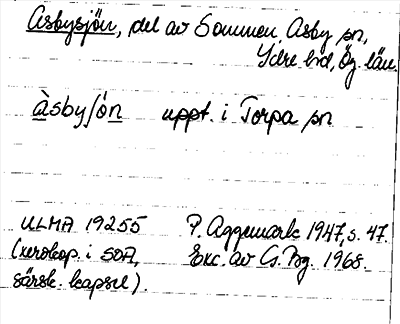 Asbysjön, del av Sommen, Asby sn,
Ydre hd, Ög. län.
àsby∫òn uppt. i Torpa sn
ULMA 19255 P. Aggemark 1947, s. 47.
(xerokop. i SOA, Exc. av G. Bg. 1968.
särsk. kapsel).